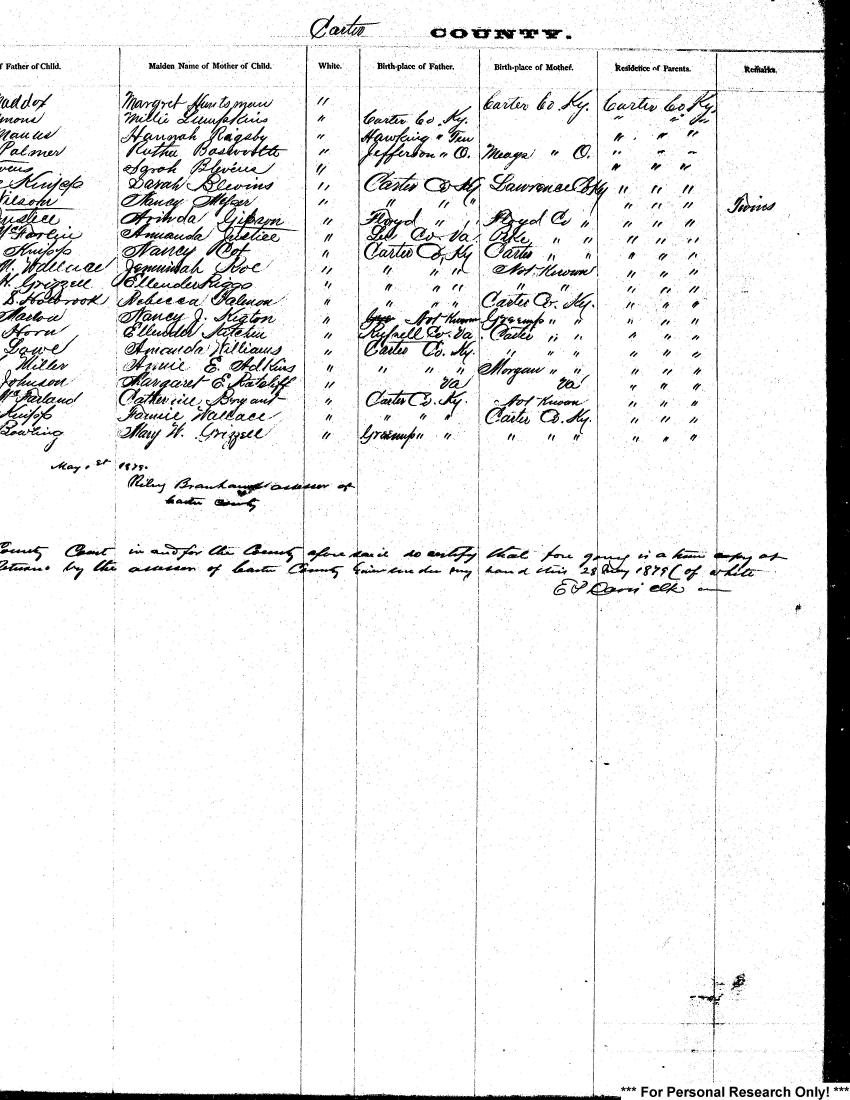 Carter COUNTY.
f Father of Child. Maiden Name of Mother of Child. White. Birth-place of Father. Birth-place of Mother. Residence of Parents. Remarks.
addox Margret Huntsman " Carter Co Ky. Carter Co Ky,
mons Millie Lumpkins " Carter Co. Ky. " " "
Manus Hannah Rigsby " Hawking " Ten " " "
Palmer Rutha Bosworth " Jefferson " O. Meags " O. " " "
Sarah Blevins " " " "
Knipp Sarah Blevins " Carter Co Ky Lawrence Co Ky " " "
Wilson Nancy " " " " " " " Twins
Justice Gibson " Floyd " " Floyd Co " " " "
McFarlin Amanda Justice " Lee Co. Va. Pike " " " " "
Knipp Nancy " Carter Co, Ky Carter " " " " "
Wallace Jemimah Roe " " " " Not Known " " "
Grizzell Ellender Riggs " " " " " " " " " "
S. Holbrook Rebecca Salmon " " " " Carter Co. Ky. " " "
Nancy J. Kegton " Not Known Greenup " " " " "
Horn Ellender " Russell Co. Va. Carter " " " " "
Lowe Amanda Williams " Carter Co. Ky. " " " " " "
Miller Annie E. Adkins " " " " Morgan " " " " "
Johnson Margaret E. Ratcliff " Va Va " " "
McFarland Catherine Bryant " Carter Co. Ky Not Known " " "
Knipp Fannie Wallace " " " " Carter Co. Ky. " " "
Bowling Mary W. Grizzell " Greenup " " " " " " " "
May 1st 1879.
Riley Branham assessor of
Carter County
County Court in and for the County afore said do certify that fore going is a true copy of
returns by the assessor of Carter County Given under my hand this 28 May 1879 (of white
Davis clk
*** For Personal Research Only! ***